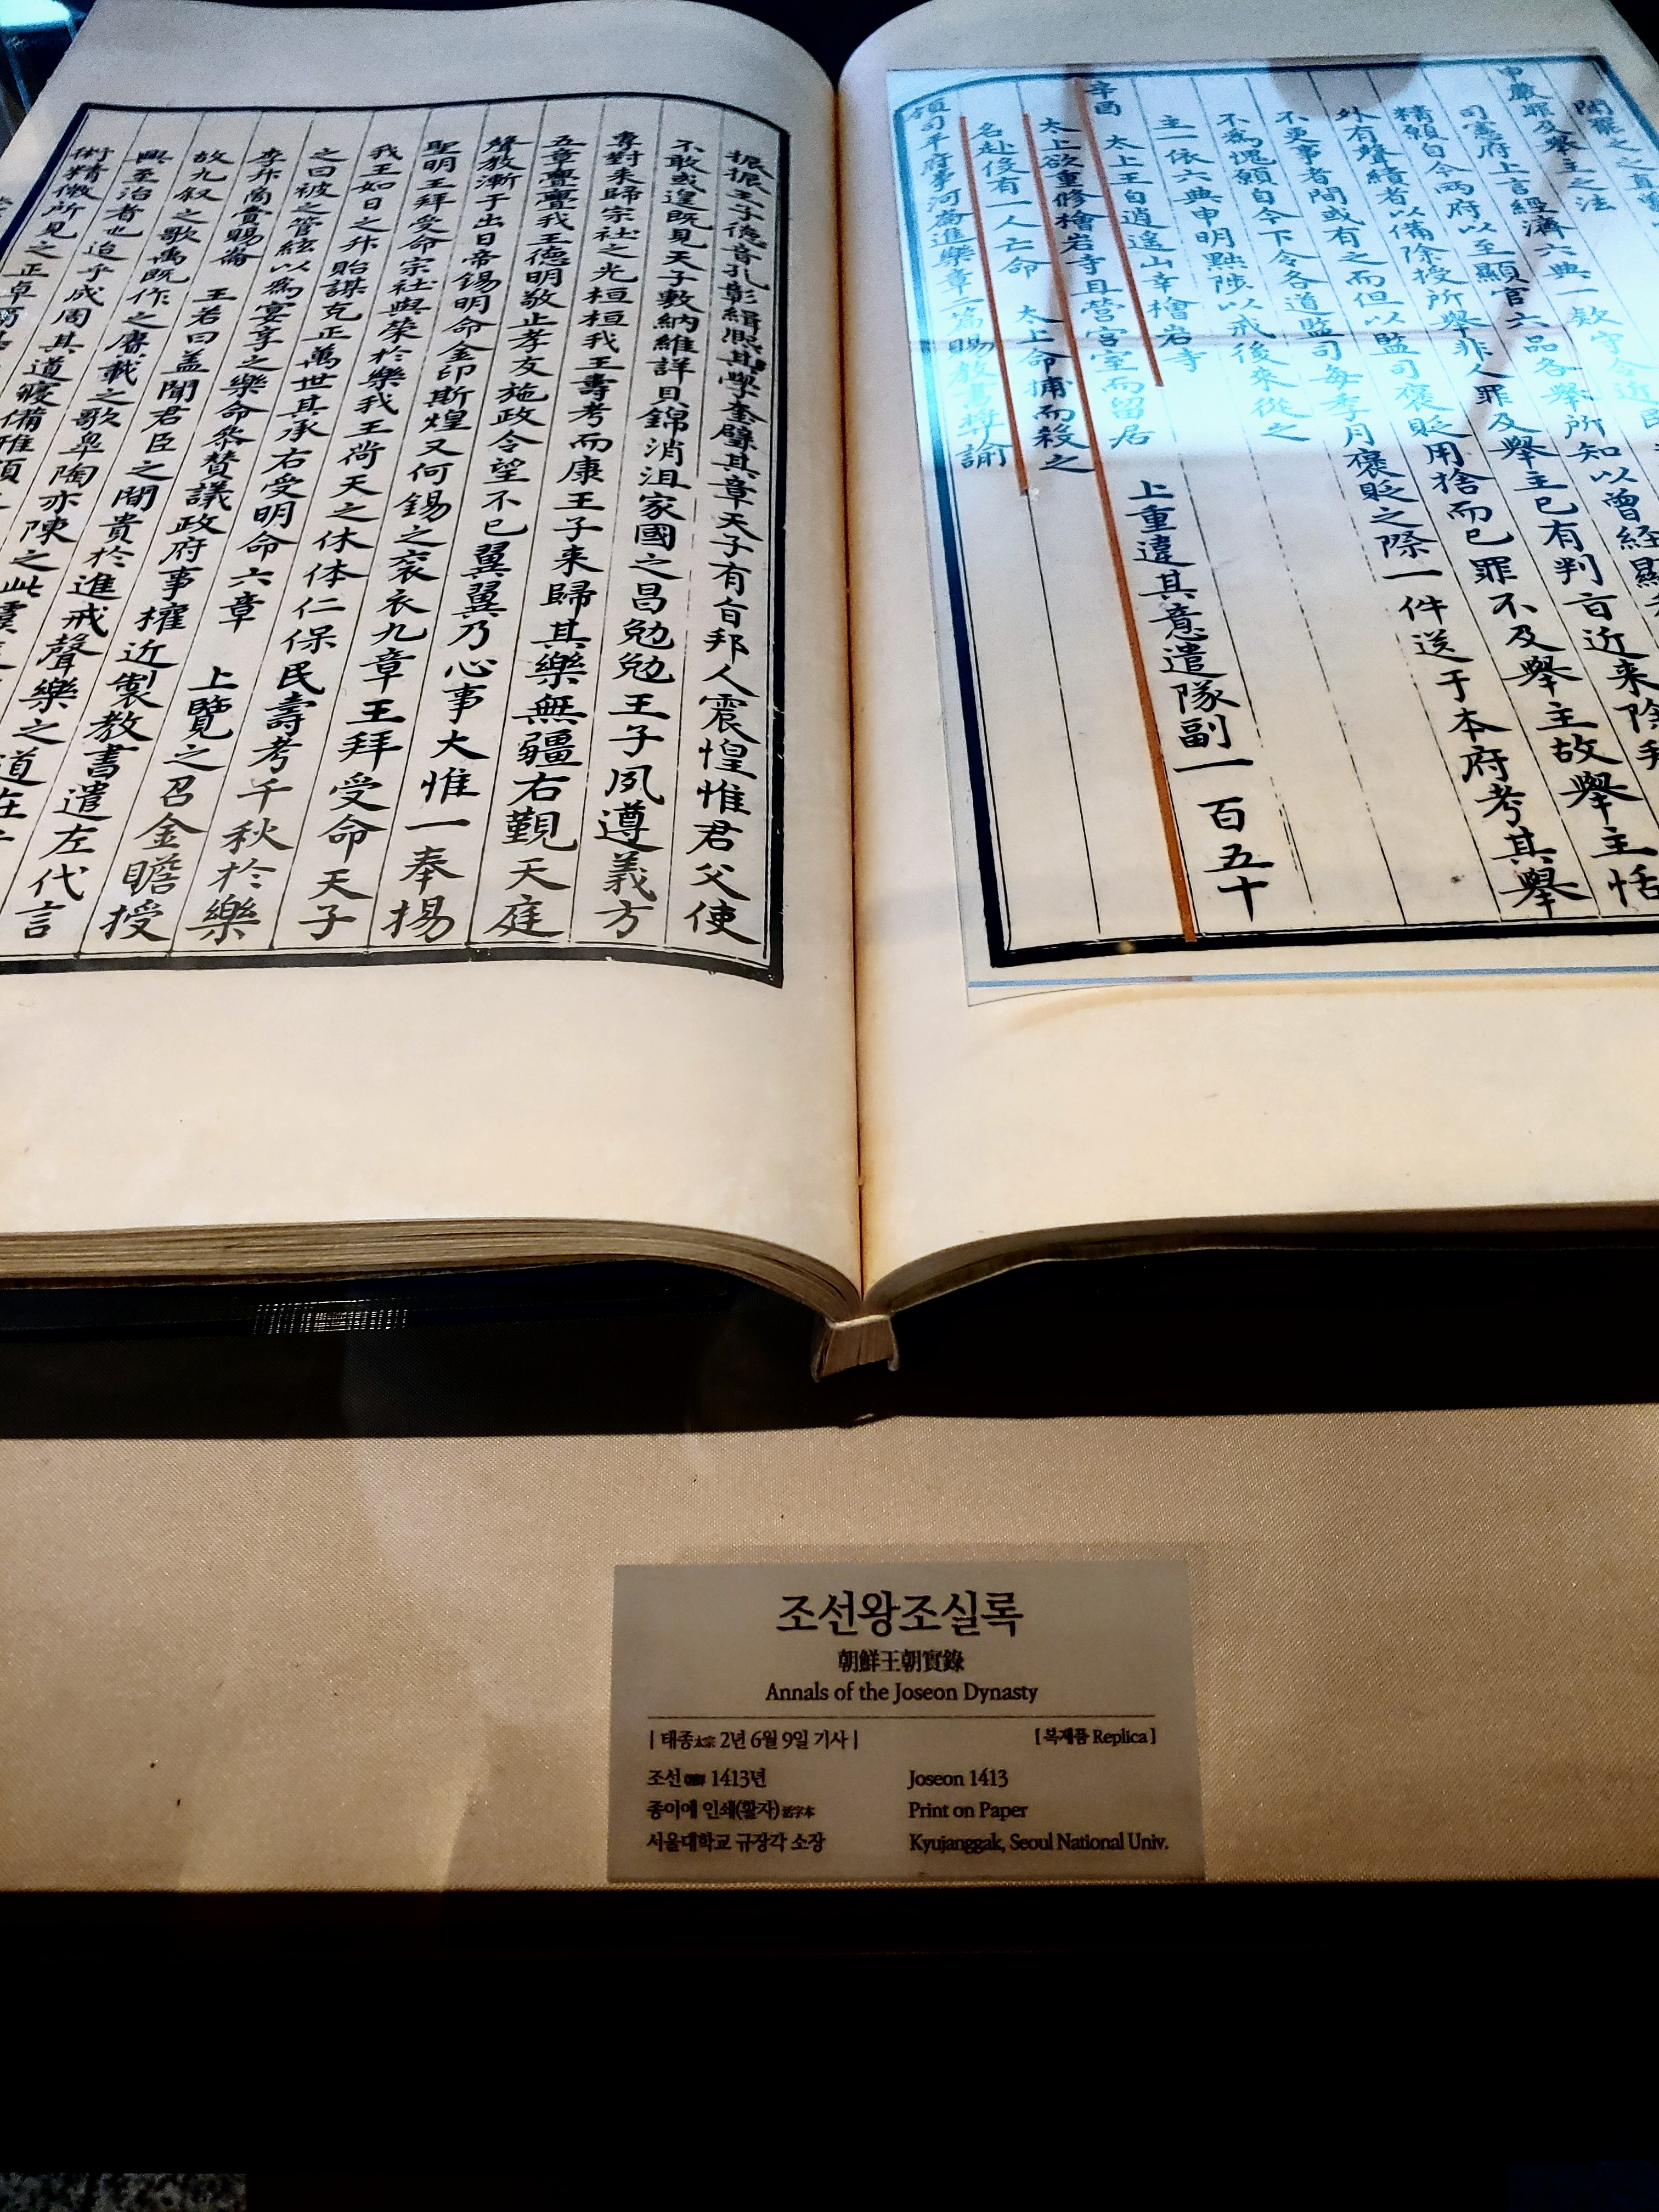 申嚴罪及舉主之法
司憲府上言經濟六典一款守令近
精願自今兩府以至顯官六品各舉所知以曾經顯
外有聲績者以備除授所舉非人罪及舉主已有判旨近來除拜
不更事者間或有之而但以監司褒貶用捨而已罪不及舉主故舉主恬
不爲愧願自今下令各道監司每季月褒貶之際一件送于本府考其舉
主一依六典申明黜陟以戒後來從之
辛酉 太上王自逍遙山幸檜岩寺
太上欲重修檜岩寺且營宮室而留居 上重違其意遣隊副一百五十
名赴役有一人亡命 太上命捕而殺之
領司平府事河崙進樂章二篇賜敎書獎諭
振振王子德音孔彰緝熙其學奎璧其章天子有旨邦人震惶惟君父使
不敢或遑既見天子敷納維詳貝錦消沮家國之昌勉勉王子夙遵義方
專對来歸宗社之光桓桓我王壽考而康王子来歸其樂無疆右覲天庭
五章亹亹我王德明敬止孝友施政令望不已翼翼乃心事大惟一奉揚
聲敎漸于出日帝錫明命金印斯煌又何錫之衮衣九章王拜受命天子
聖明王拜受命宗社與榮於樂我王尚天之休体仁保民壽考千秋於樂
我王如日之升貽謀克正萬世其承右受明命六章 上覽之召金瞻授
之曰被之管絃以爲宴享之樂命叅賛議政府事權近製教書遣左代言
李升商賞賜崙 王若曰盖聞君臣之間貴於進戒聲樂之道在
故九叙之歌禹既作之賡載之歌臯陶亦陳之此虞
興至治者也迨乎成周其道寖備雅頌
術精微所見之正卓爾
조선왕조실록
朝鮮王朝實錄
Annals of the Joseon Dynasty
| 태종太宗 2년 6월 9일 기사 |
[ 복제품 Replica ]
조선朝鮮 1413년
Joseon 1413
종이에 인쇄(활자)活字本
Print on Paper
서울대학교 규장각 소장
Kyujanggak, Seoul National Univ.